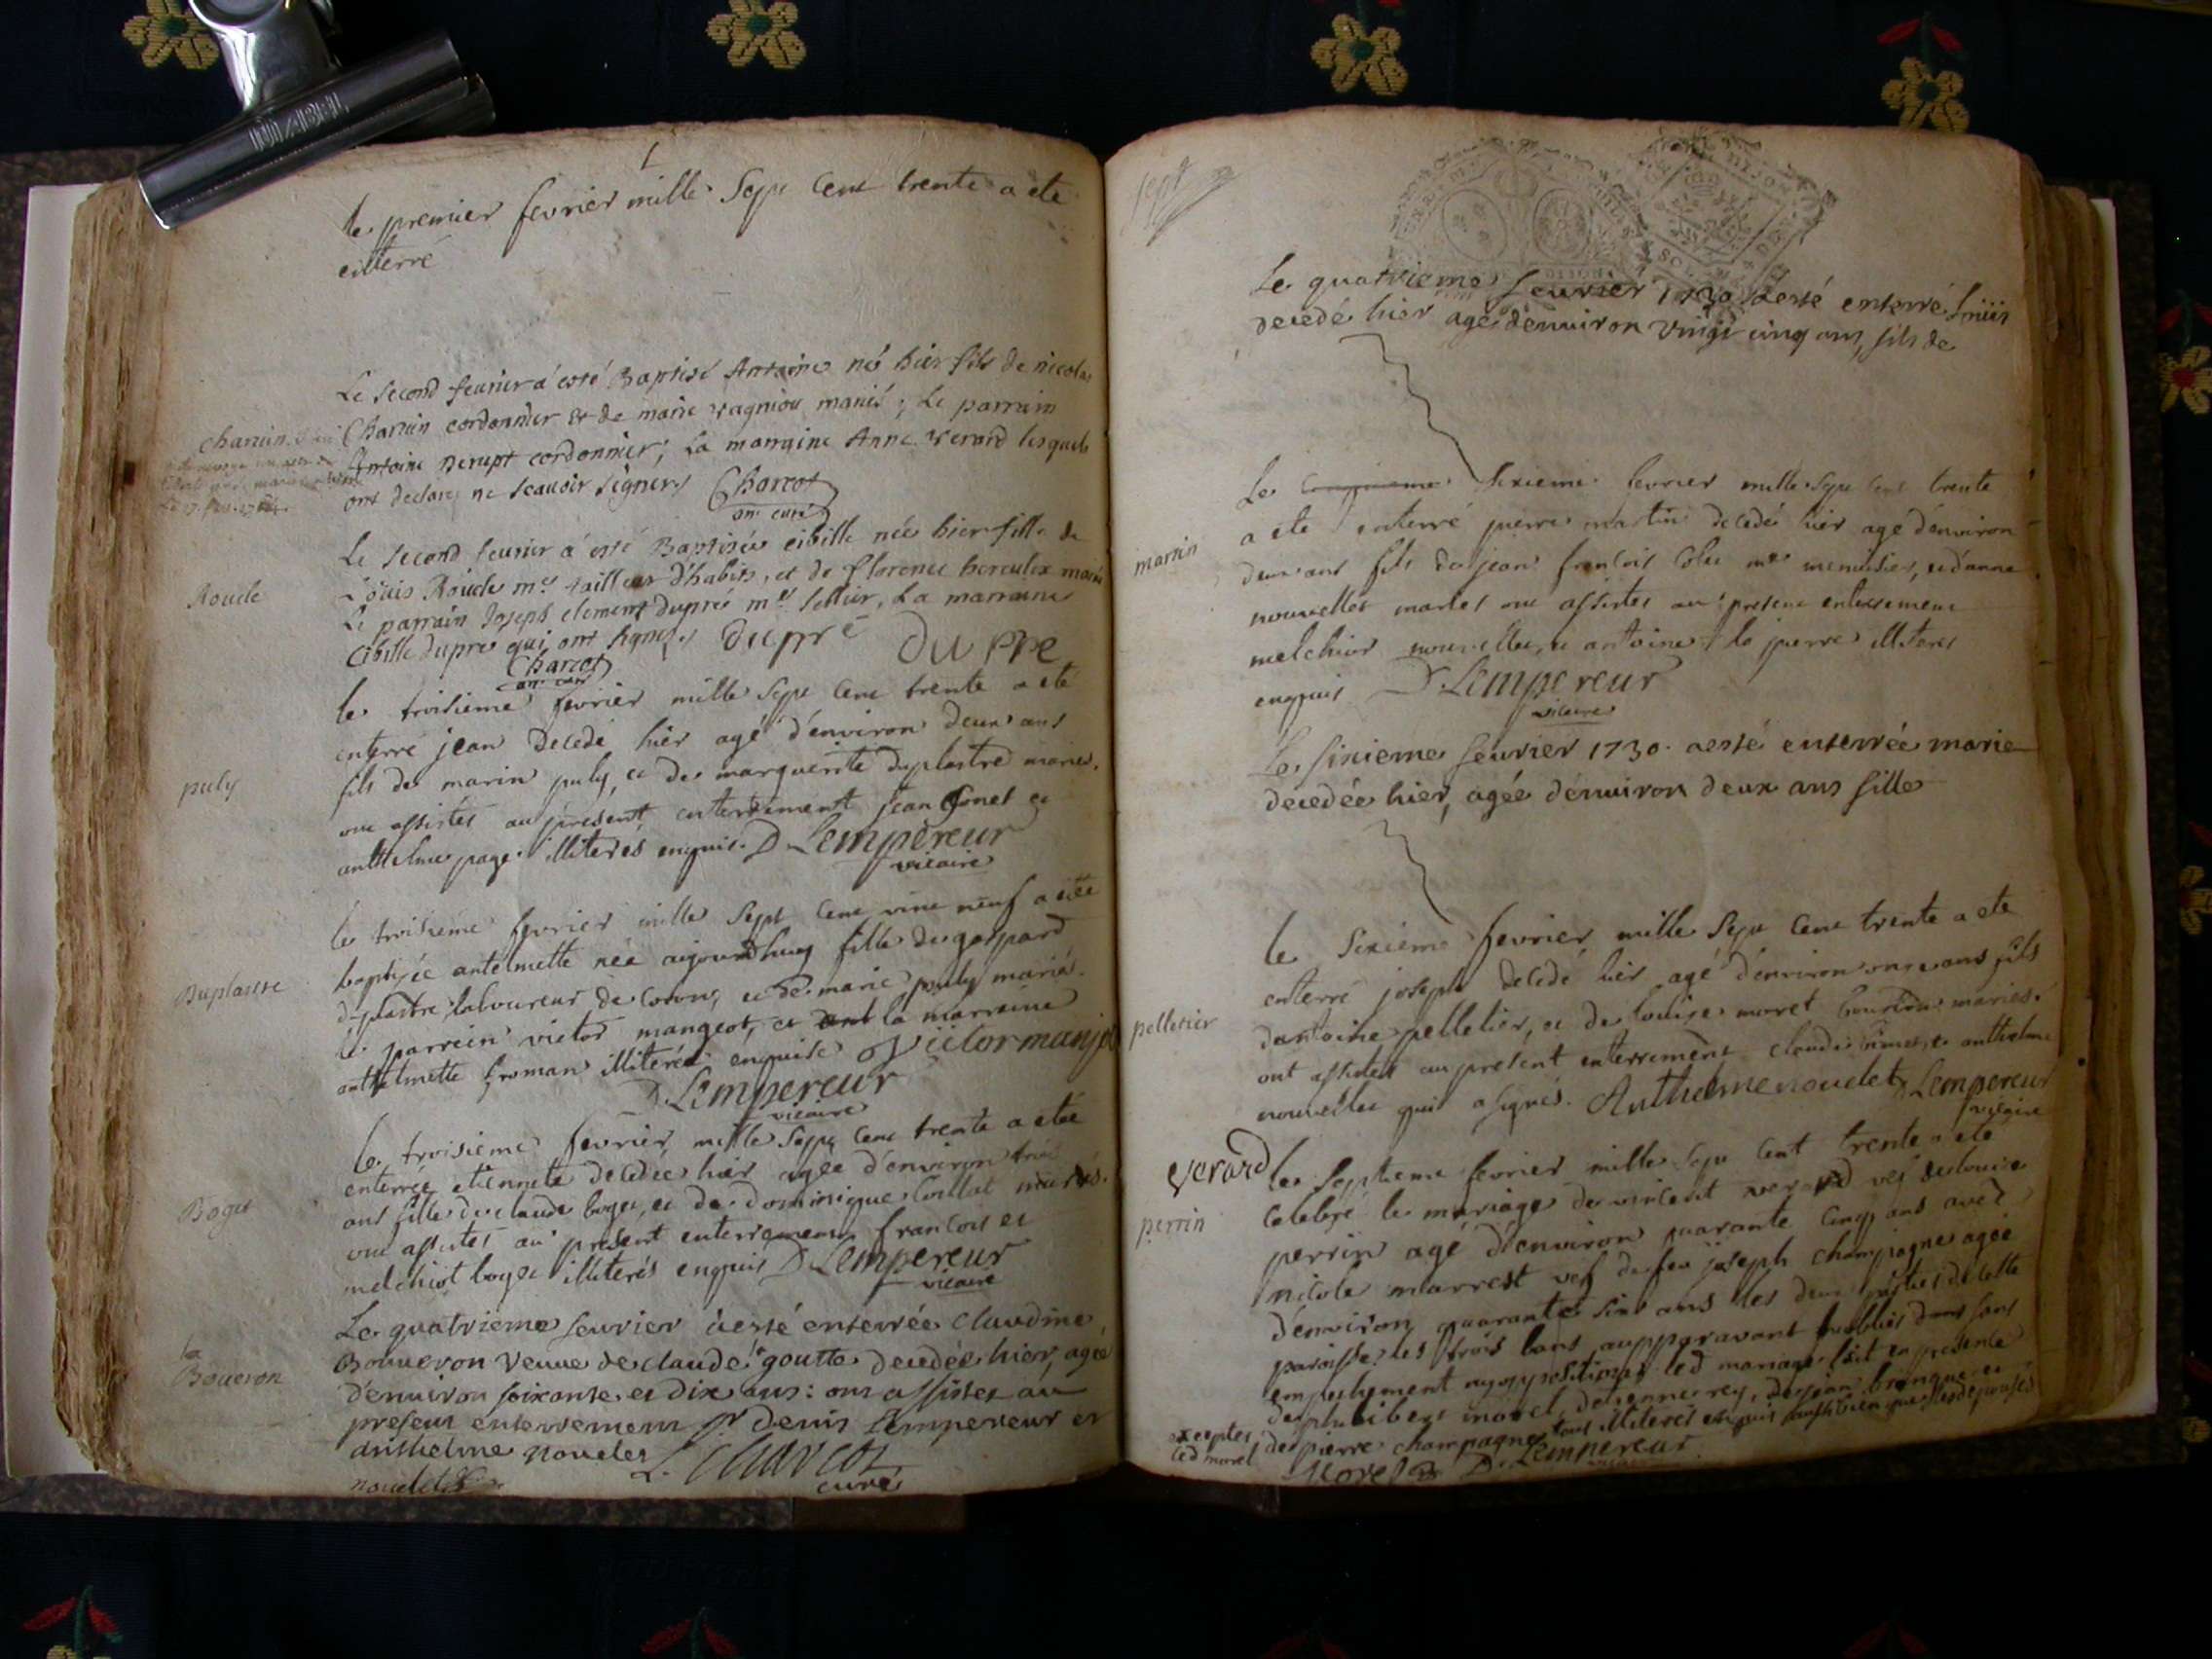 le premier fevrier mille sept cent trente a ete
enterré
Le second feurier a esté Baptisé Antoine né hier fils de nicolas
charcun
Charcun cordonnier et de marie vagniou mariés; Le parrain
Antoine Derupt cordonnier; La marraine Anne Verard lesquels
ont declaré ne scauoir signer. Charcot
anc. curé
Le second feurier a esté Baptisée cibille née hier fille de
Roude
Loüis Roude me. tailleur d'habits, et de florence hercules mariés
Le parrain Joseph clement dupré me. sellier, La marraine
Cibille dupré qui ont signés. dupré DUPRE
Charcot
anc. curé
le troisieme fevrier mille sept cent trente a eté
enterré jean decedé hier agé d'environ deux ans
puly
fils de marin puly, et de marguerite duplastre mariés.
ont assistés au present enterrement jean et
anthelme page illiterés enquis. D. Lempereur
vicaire
le troisieme fevrier mille sept cent vint neuf a eté
baptisée antelmette née aujourdhuy fille de gaspard
Duplastre
duplastre laboureur de et de marie puly mariés.
le parrein victor mangeot, et la marraine
anthelmette froman illiterée enquise Victor manjot
D. Lempereur
vicaire
le troisieme fevrier mille sept cent trente a eté
enterrée etiennete decedée hier agée d'environ trois
Boget
ans fille de claude boget, et de dominique collat mariés.
ont assistés au present enterrement francois et
melchiot boget illiterés enquis D. Lempereur
vicaire
Le quatrieme feurier a esté enterrée claudine
la
Boueron
Boueron veuue de claude goutte decedée hier, agée
d'enuiron soixante et dix ans: ont assistés au
present enterrement sr. denis Lempereur et
anthelme nouelet
L. Charcot
nouelet
curé
sept
Le quatrieme feurier 1730 a esté enterré Loüis
decedé hier agé denuiron vingt cinq ans, fils de
Le cinquieme sixieme fevrier mille sept cent trente
a ete enterré pierre martin decedé hier agé d'environ
martin
deux ans fils de jean francois me menuisier, et d'anne
nouvellet mariés ont assistés au present enterrement
melchior nouvellet, et antoine la pierre illiterés
enquis D. Lempereur
vicaire
Le sixieme feurier 1730. a esté enterrée marie
decedée hier, agée d'enuiron deux ans fille
le sixieme fevrier mille sept cent trente a ete
enterré joseph decedé hier agé d'environ onze ans fils
pelletier
dantoine pelletier, et de louise moret mariés.
ont assistés au present enterrement claude et anthelme
nouvellet qui a signés. Anthelme nouelet D. Lempereur
vicaire
Verard
le septieme fevrier mille sept cent trente a eté
celebré le mariage de vincent verard vef de louise
perrin
perrin agé d'environ quarante cinq ans avec
nicole marrest vef de feu joseph champagne agée
d'environ quarante cinq ans les deux parties de cette
paroisse les trois bans aupparavant publiés dans sans
empechement ny opposition led mariage fait en presence
de philibert morel, detienne rey, de jean et
exceptez
led morel
de pierre champagne tous illiterés enquis
Morel D. Lempereur